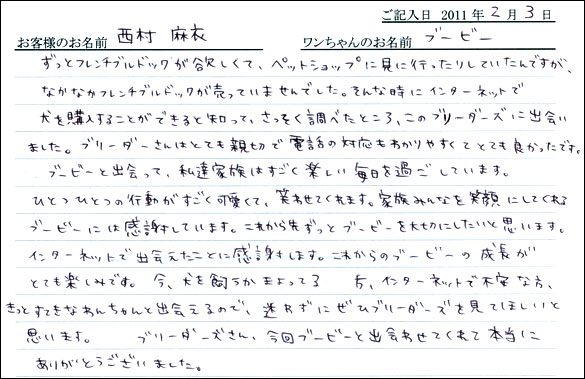 ご記入日 2011 年 2 月 3 日
お客様のお名前 西村 麻衣 ワンちゃんのお名前 ブービー
ずっとフレンチブルドックが欲しくて、ペットショップに見に行ったりしていたんですが、
なかなかフレンチブルドックが売っていませんでした。そんな時にインターネットで
犬を購入することができると知って、さっそく調べたところ、このブリーダーズに出会い
ました。ブリーダーさんはとても親切で電話の対応もわかりやすくてとても良かったです。
ブービーと出会って、私達家族はすごく楽しい毎日を過ごしています。
ひとつひとつの行動がすごく可愛くて、笑わせてくれます。家族みんなを笑顔にしてくれる
ブービーには感謝しています。これから先ずっとブービーを大切にしたいと思います。
インターネットで出会えたことに感謝します。これからのブービーの成長が
とても楽しみです。今、犬を飼うかまよってる 方、インターネットで不安な方、
きっとすてきなわんちゃんと出会えるので、迷わずにぜひブリーダーズを見てほしいと
思います。 ブリーダーズさん、今回ブービーと出会わせてくれて本当に
ありがとうございました。